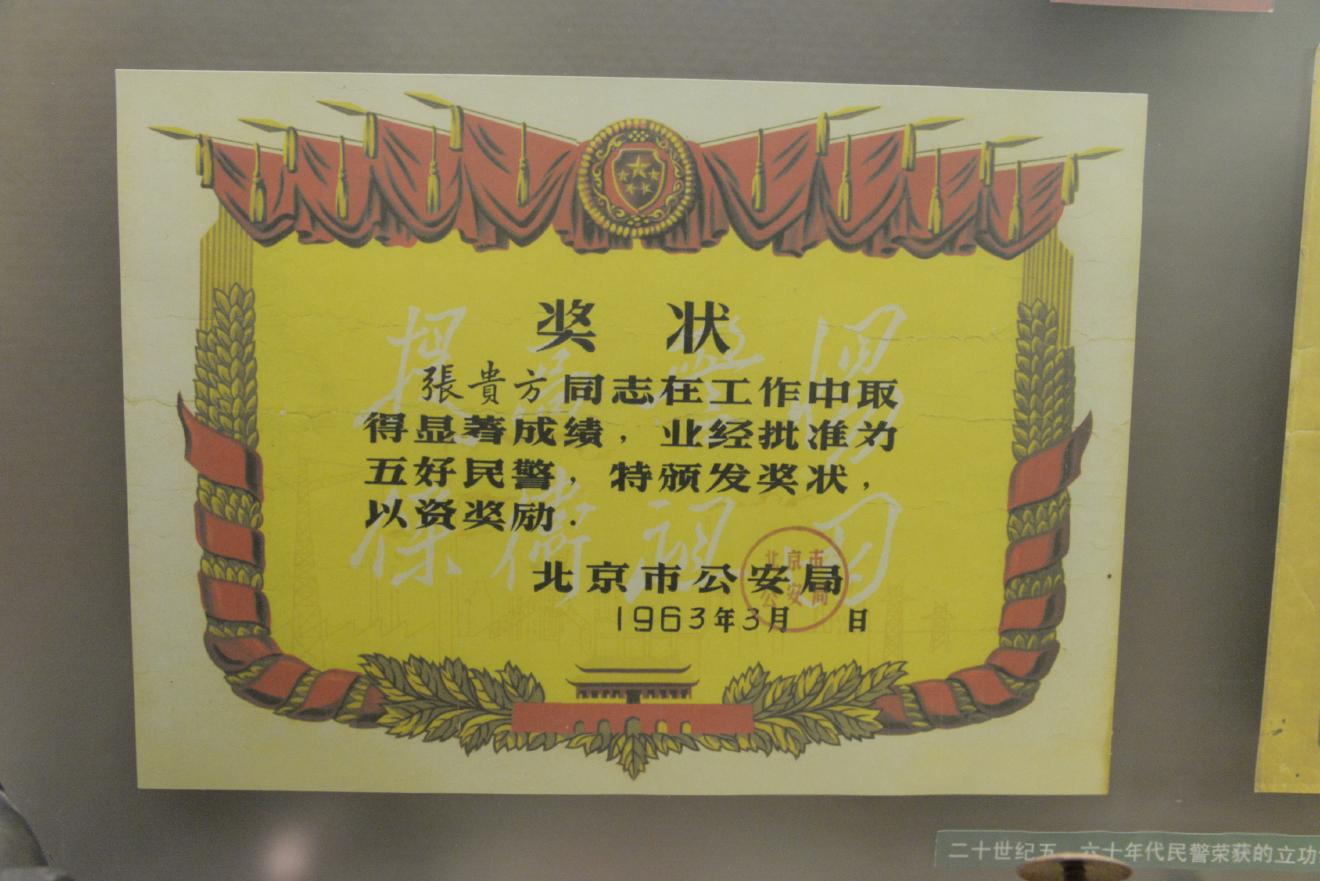 奖 状
張貴方同志在工作中取
得显著成绩，业经批准为
五好民警，特颁发奖状，
以资奖励.
北京市公安局
1963年3月 日
北京市
公安局
提高警惕
保衛祖国
二十世纪五、六十年代民警荣获的立功